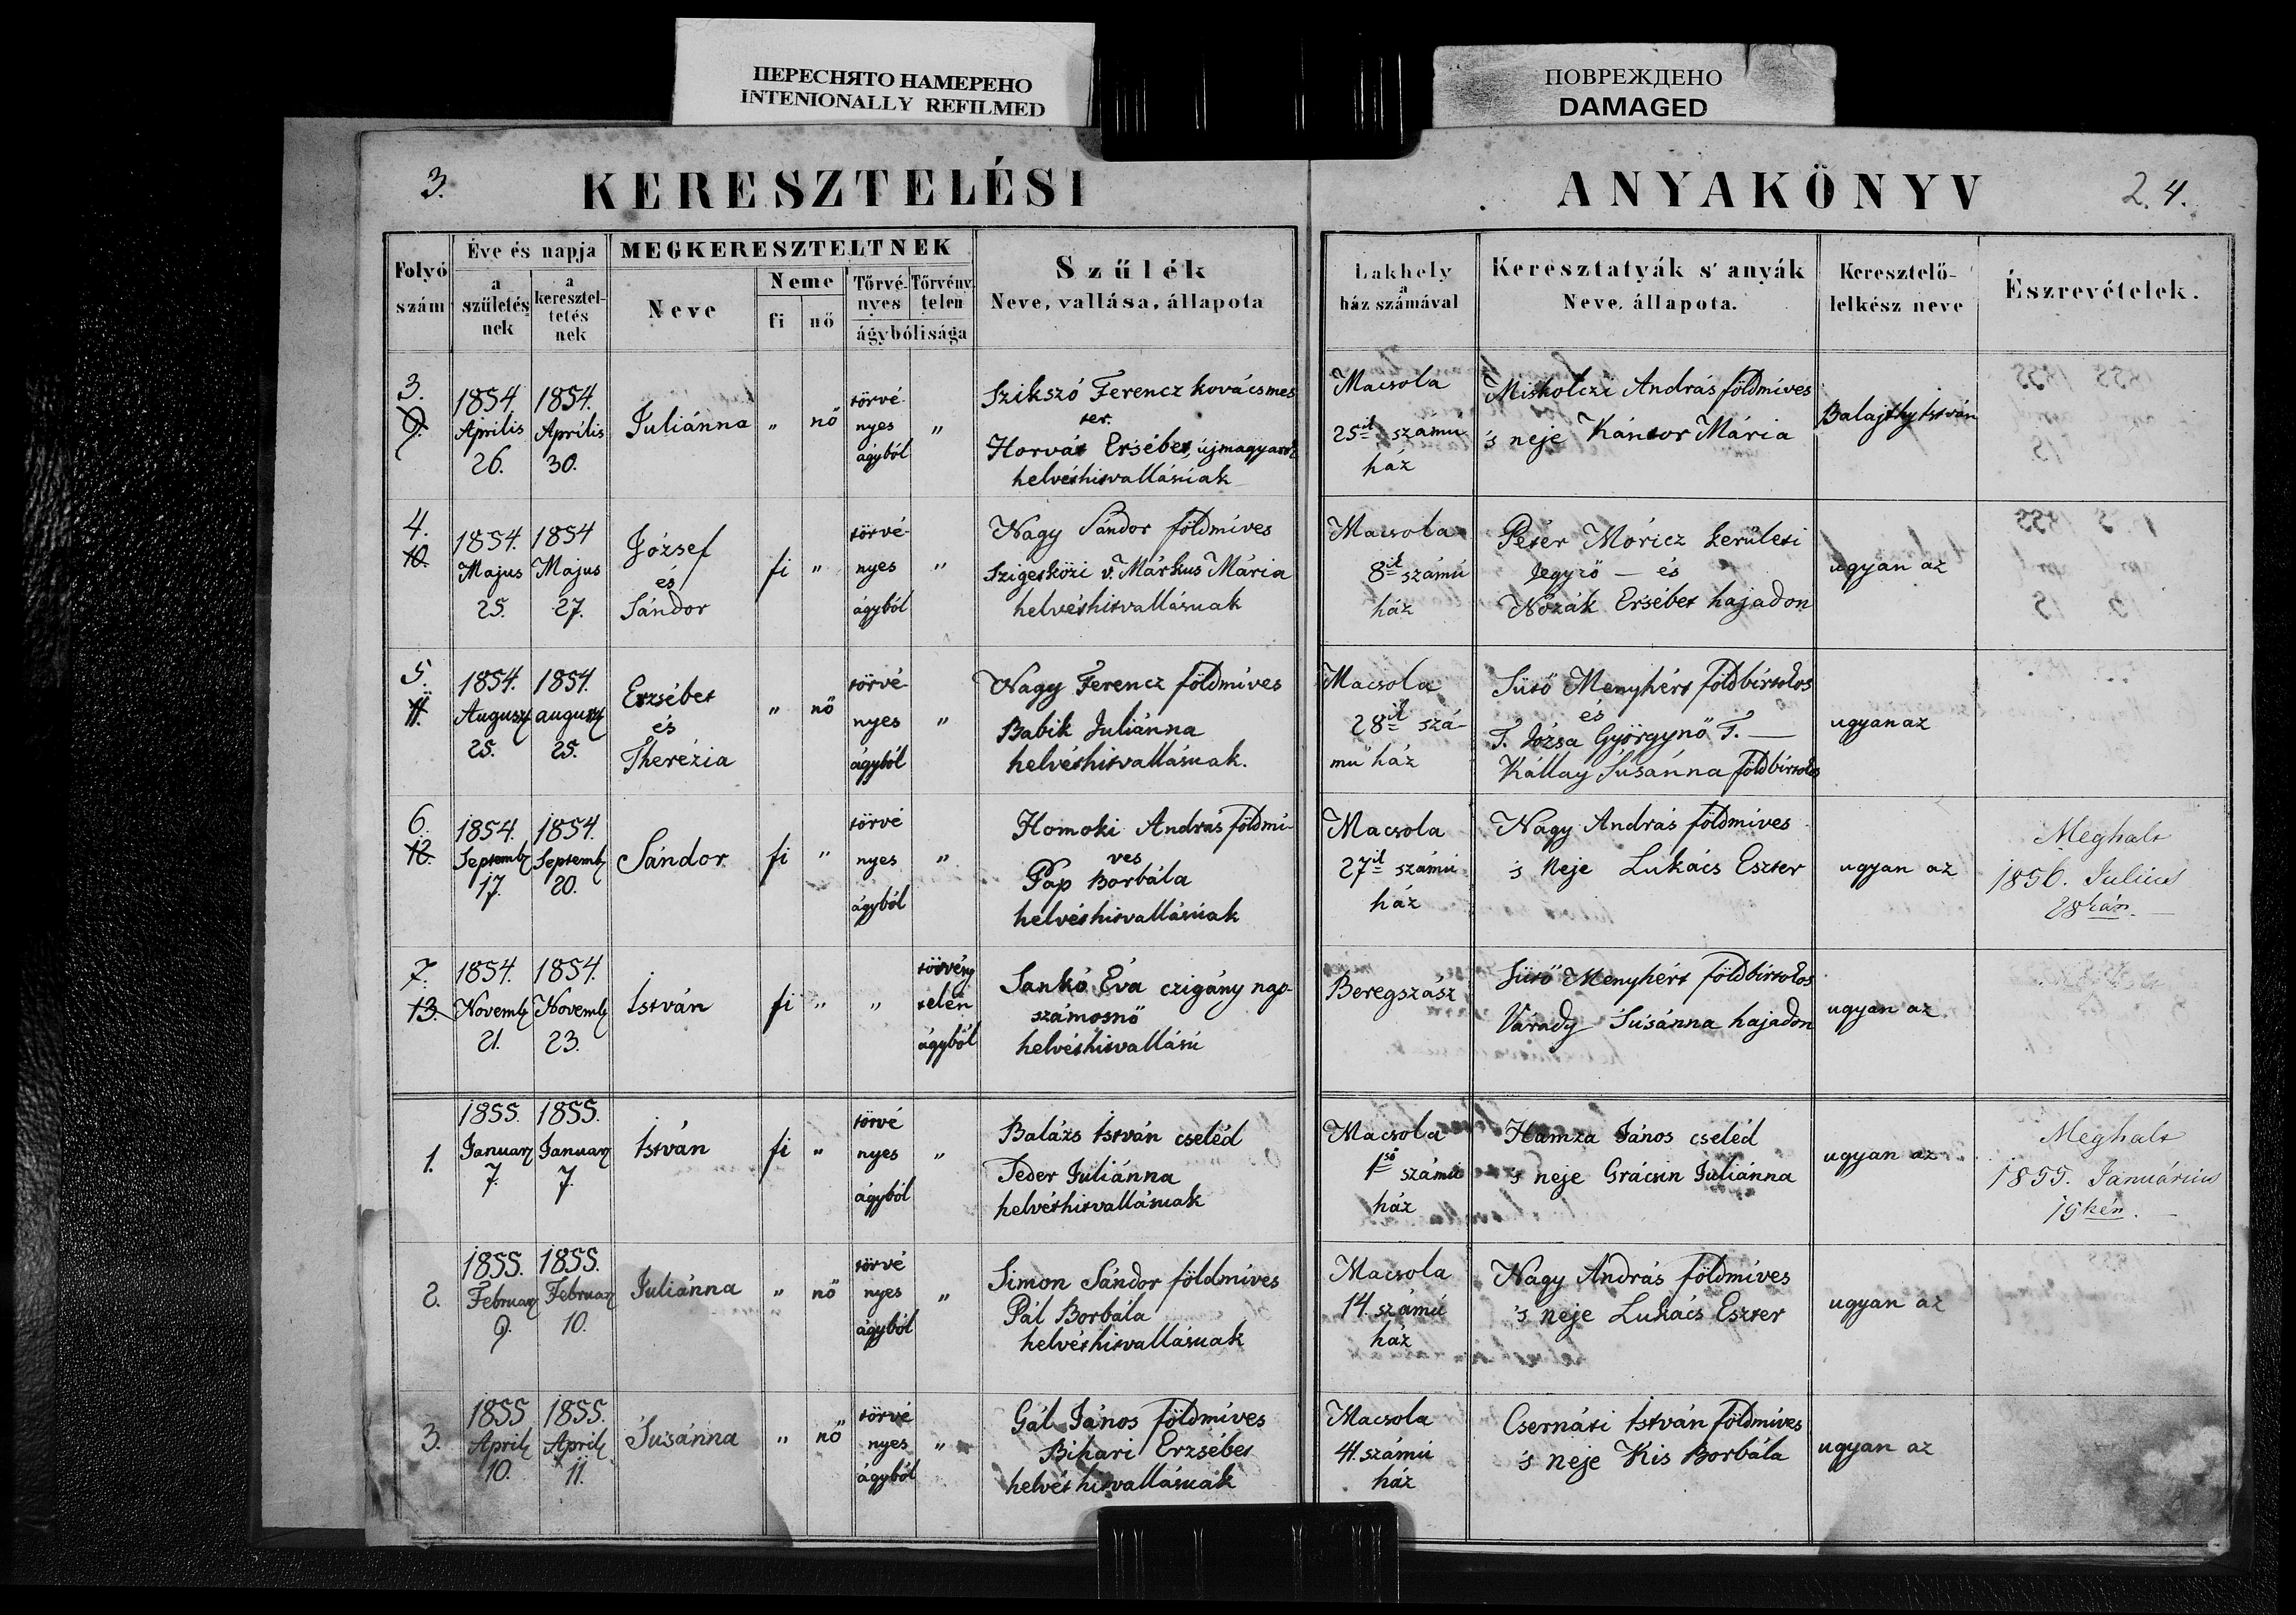 ПЕРЕСНЯТО НАМЕРЕНО
INTENIONALLY REFILMED
ПОВРЕЖДЕНО
DAMAGED
3. KERESZTELÉSI ANYAKÖNYV 2. 4.
Folyó szám
Éve és napja
a születés nek
a keresztel- tetés nek
MEGKERESZTELTNEK
Neve
Neme
fi
nő
Törvé- nyes
Törvény- telen
ágybólisága
Szűlék
Neve, vallása, állapota
Lakhely
a
ház számával
Keresztatyák s' anyák
Neve, állapota.
Keresztelő-
lelkész neve
Észrevételek.
3.
9.
1854 Aprilis 26.
1854. Aprilis 30.
Juliánna
„
nő
törvé-
nyes
ágyból
„
Szikszó Ferencz kovácsmes
ter.
Horvát Ersébet, újmagyar
helvéthitvallásúak
Macsola
25ik számú
ház
Miskolczi András földmíves
's neje Kántor Mária
Balajthy István
4.
10.
1854. Majus 25.
1854 Majus 27.
József
és
Sándor
fi
„
törvé-
nyes
ágyból
„
Nagy Sándor földmíves
Szigetközi v. Márkus Mária
helvéthitvallásuak
Macsola
8ik számú
ház
Péter Móricz kerületi
Jegyző — és
Nozák Ersébet hajadon
ugyan az
5.
11.
1854. Augusz 25.
1854. augusz 25.
Erzsébet
és
Therézia
„
nő
törvé-
nyes
ágyból
„
Nagy Ferencz földmíves
Babik Juliánna
helvéthitvallásuak.
Macsola
28ik szá-
mú ház
Sütő Menyhért földbirtokos
és
T. Józsa Györgynő T. —
Kállay Susánna földbirtokos
ugyanaz
6.
12.
1854. Septemb 17.
1854. Septemb 20.
Sándor
fi
„
törvé
nyes
ágyból
„
Homoki András földmí-
ves
Pap Borbála
helvéthitvallásúak
Macsola
27ik számú
ház
Nagy András földmíves
's Neje Lukács Eszter
ugyan az
Meghalt
1856. Július
28kán.
7.
13.
1854. Novemb 21.
1854. Novemb 23.
István
fi
„
„
törvény
telen
ágyból
Sankó Éva czigány nap-
számosnő
helvéthitvallású
Beregszász
Sütő Menyhért földbirtokos
Várady Susánna hajadon
ugyan az
1.
1855. Januar 7.
1855. Januar 7.
István
fi
„
törvé
nyes
ágyból
„
Balázs István cseléd
Féder Juliánna
helvéthitvallásuak
Macsola
1ső számú
ház
Hamza János cseléd
's neje Grácsin Juliánna
ugyan az
Meghalt
1855. Januárius
19kén.
2.
1855. Februar 9.
1855. Februar 10.
Juliánna
„
nő
törvé
nyes
ágyból
„
Simon Sándor földmíves
Pál Borbála
helvéthitvallásuak
Macsola
14. számú
ház
Nagy András földmíves
's neje Lukács Eszter
ugyan az
3.
1855 April 10.
1855. April 11.
Susánna
„
nő
törvé
nyes
ágyból
„
Gál János földmíves
Bihari Erzsébet
helvét hitvallásuak
Macsola
41. számú
ház
Csernáti István földmíves
's neje Kis Borbála
ugyan az